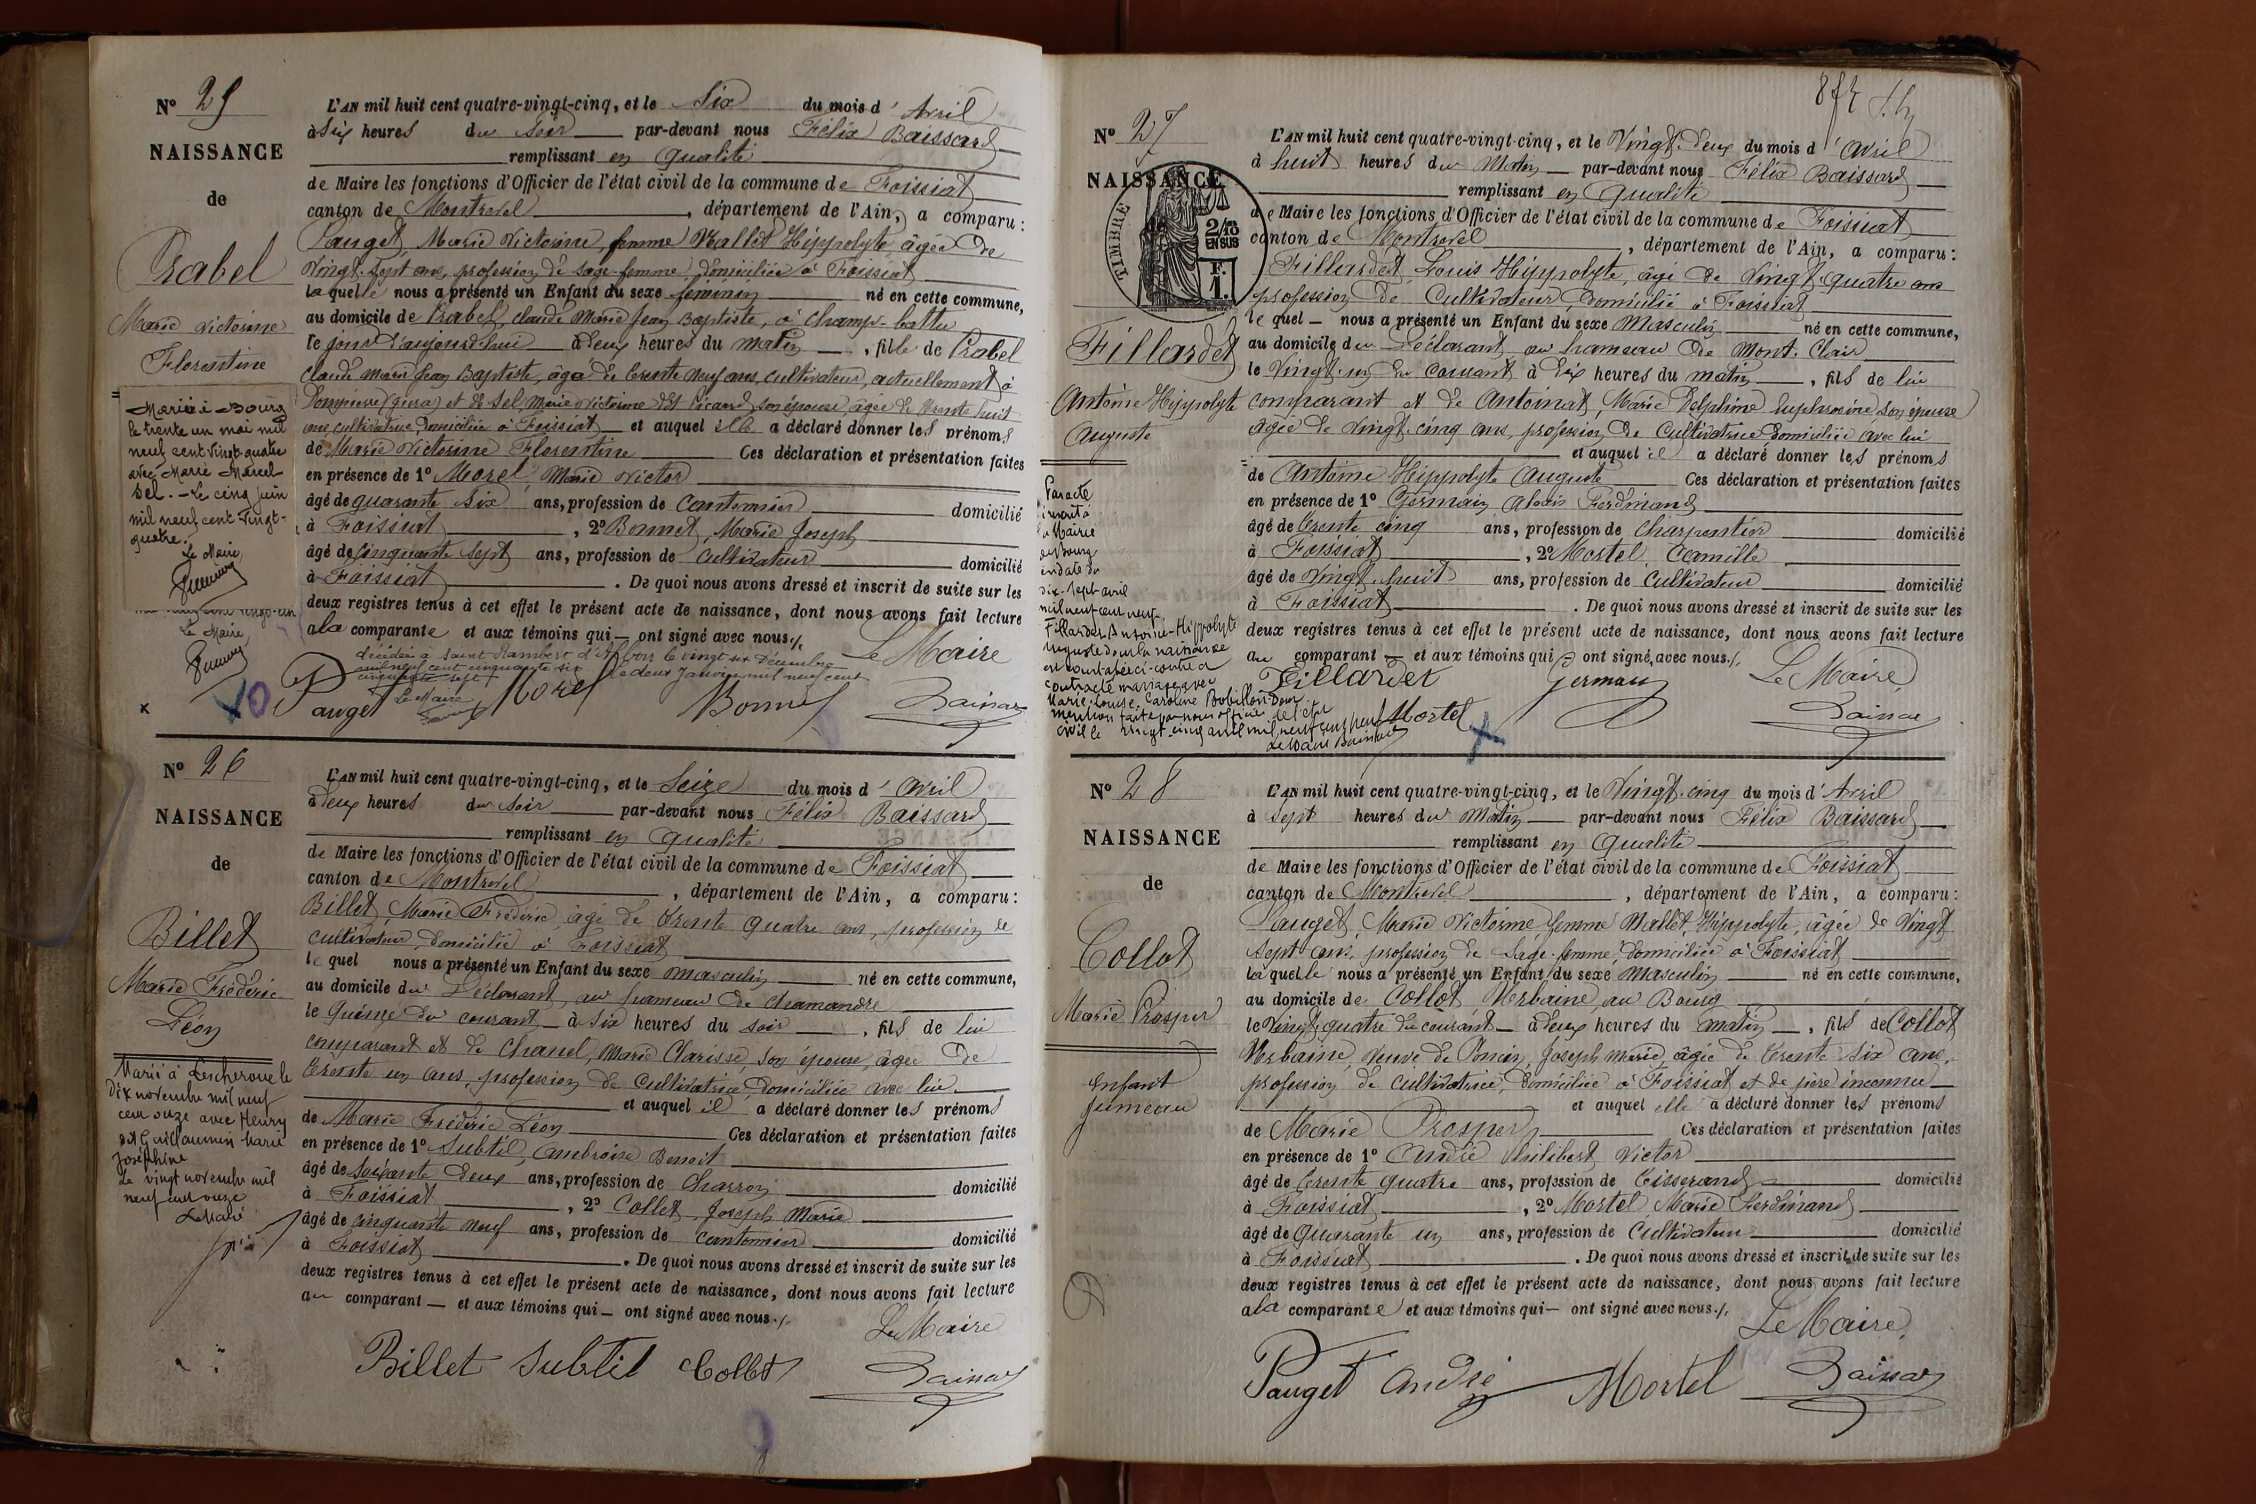 Nº 25
NAISSANCE
de
Prabel
Marie Victorine
Florentine
Mariée à Bourg
le trente un mai mil
neuf cent vingt-quatre
avec Marie Marcel
Sel. - Le cinq juin
mil neuf cent vingt-
quatre.
Le Maire
Le Maire
L'AN mil huit cent quatre-vingt-cinq, et le Six du mois d'Avril
à Six heures du Soir par-devant nous Félix Baissard
remplissant en qualité
de Maire les fonctions d'Officier de l'état civil de la commune de Foissiat
canton de Montrevel, département de l'Ain, a comparu:
Pauget, Marie Victorine, femme Mallet Hippolyte âgée de
Vingt Sept ans, profession de sage-femme domiciliée à Foissiat
la quelle nous a présenté un Enfant du sexe féminin né en cette commune,
au domicile de Prabel, Claude Marie Jean Baptiste, à Champ-battu
le jour d'aujourd'hui à deux heures du matin, fille de Prabel
Claude Marie Jean Baptiste, âgé de trente neuf ans, cultivateur, actuellement à
(Jura) et de Sel, Marie Victorine dit Picard, son épouse âgée de trente huit
ans cultivatrice domiciliée à Foissiat et auquel elle a déclaré donner les prénoms
de Marie Victorine Florentine Ces déclaration et présentation faites
en présence de 1º Morel Marie Victor
âgé de quarante six ans, profession de Cantonnier domicilié
à Foissiat, 2º Bonnet, Marie Joseph
âgé de cinquante sept ans, profession de Cultivateur domicilié
à Foissiat. De quoi nous avons dressé et inscrit de suite sur les
deux registres tenus à cet effet le présent acte de naissance, dont nous avons fait lecture
à la comparante et aux témoins qui ont signé avec nous.
décédée à Saint Rambert d'Albon le vingt six Décembre
mil neuf cent cinquante six
Le deux Janvier mil neuf cent
cinquante sept
Le Maire
Le Maire
Pauget Morel Bonnet Baissard
Nº 26
NAISSANCE
de
Billet
Marie Frédéric
Léon
Marié à Lescheroux le
dix novembre mil neuf
cent onze avec Henry
dit Guillaumin Marie
Joséphine
Le vingt novembre mil
neuf cent onze
Le Maire
L'AN mil huit cent quatre-vingt-cinq, et le Seize du mois d'Avril
à deux heures du soir par-devant nous Félix Baissard
remplissant en qualité
de Maire les fonctions d'Officier de l'état civil de la commune de Foissiat
canton de Montrevel, département de l'Ain, a comparu:
Billet, Marie Frédéric, âgé de trente quatre ans, profession de
cultivateur, domicilié à Foissiat
le quel nous a présenté un Enfant du sexe masculin né en cette commune,
au domicile du Déclarant, au hameau de Chamandre
le Quinze du courant à Six heures du soir, fils de lui
comparant et de Chanel, Marie Clarisse, son épouse, âgée de
trente un ans, profession de Cultivatrice, domiciliée avec lui
et auquel il a déclaré donner les prénoms
de Marie Frédéric Léon Ces déclaration et présentation faites
en présence de 1º Subtil, Ambroise Benoit
âgé de Soixante deux ans, profession de Charron domicilié
à Foissiat, 2º Collet, Joseph Marie
âgé de cinquante neuf ans, profession de Cantonnier domicilié
à Foissiat. De quoi nous avons dressé et inscrit de suite sur les
deux registres tenus à cet effet le présent acte de naissance, dont nous avons fait lecture
au comparant et aux témoins qui ont signé avec nous.
Le Maire
Billet Subtil Collet Baissard
Nº 27
NAISSANCE
TIMBRE
2/10
EN SUS
F.
1.
Fillardet
Antoine Hippolyte
Auguste
Par acte
inscrit à
la Mairie
de Bourg
en date du
dix-sept avril
mil neuf cent neuf,
Fillardet Antoine-Hippolyte
Auguste dont la naissance
est constatée ci-contre a
contracté mariage avec
Marie-Louise, Caroline Bobillon. Dont
mention faite par nous officier de l'état
civil le vingt-cinq avril mil neuf cent neuf
Le Maire Baissard
L'AN mil huit cent quatre-vingt-cinq, et le Vingt-deux du mois d'Avril
à huit heures du Matin par-devant nous Félix Baissard
remplissant en qualité
de Maire les fonctions d'Officier de l'état civil de la commune de Foissiat
canton de Montrevel, département de l'Ain, a comparu:
Fillardet, Louis Hippolyte, âgé de Vingt-quatre ans
profession de Cultivateur, domicilié à Foissiat
le quel nous a présenté un Enfant du sexe Masculin né en cette commune,
au domicile du Déclarant au hameau de Mont-Clair
le Vingt-un du courant à dix heures du matin, fils de lui
comparant et de Antoinat, Marie Delphine Euphrosine, son épouse
âgée de Vingt cinq ans, profession de Cultivatrice domiciliée avec lui
et auquel il a déclaré donner les prénoms
de Antoine Hippolyte Auguste Ces déclaration et présentation faites
en présence de 1º Germain Alexis Ferdinand
âgé de trente cinq ans, profession de Charpentier domicilié
à Foissiat, 2º Mortel Camille
âgé de Vingt-huit ans, profession de Cultivateur domicilié
à Foissiat. De quoi nous avons dressé et inscrit de suite sur les
deux registres tenus à cet effet le présent acte de naissance, dont nous avons fait lecture
au comparant et aux témoins qui ont signé avec nous.
Le Maire
Fillardet Germain Mortel Baissard
Nº 28
NAISSANCE
de
Collot
Marie Prosper
Enfant
Jumeau
L'AN mil huit cent quatre-vingt-cinq, et le Vingt-cinq du mois d'Avril
à Sept heures du Matin par-devant nous Félix Baissard
remplissant en Qualité
de Maire les fonctions d'Officier de l'état civil de la commune de Foissiat
canton de Montrevel, département de l'Ain, a comparu:
Pauget, Marie Victorine femme Mallet, Hippolyte, âgée de Vingt
Sept ans, profession de Sage-femme, domiciliée à Foissiat
la quelle nous a présenté un Enfant du sexe Masculin né en cette commune,
au domicile de Collot Urbaine, au Bourg
le Vingt-quatre du courant à deux heures du matin, fils de Collot
Urbaine, Veuve de Poncin, Joseph Marie, âgée de trente six ans,
profession de cultivatrice, domiciliée à Foissiat et de père inconnu
et auquel elle a déclaré donner les prénoms
de Marie Prosper Ces déclaration et présentation faites
en présence de 1º André Philibert Victor
âgé de trente quatre ans, profession de Tisserand domicilié
à Foissiat, 2º Mortel Marie Ferdinand
âgé de Quarante un ans, profession de Cultivateur domicilié
à Foissiat. De quoi nous avons dressé et inscrit de suite sur les
deux registres tenus à cet effet le présent acte de naissance, dont nous avons fait lecture
à la comparante et aux témoins qui ont signé avec nous.
Le Maire
Pauget André Mortel Baissard